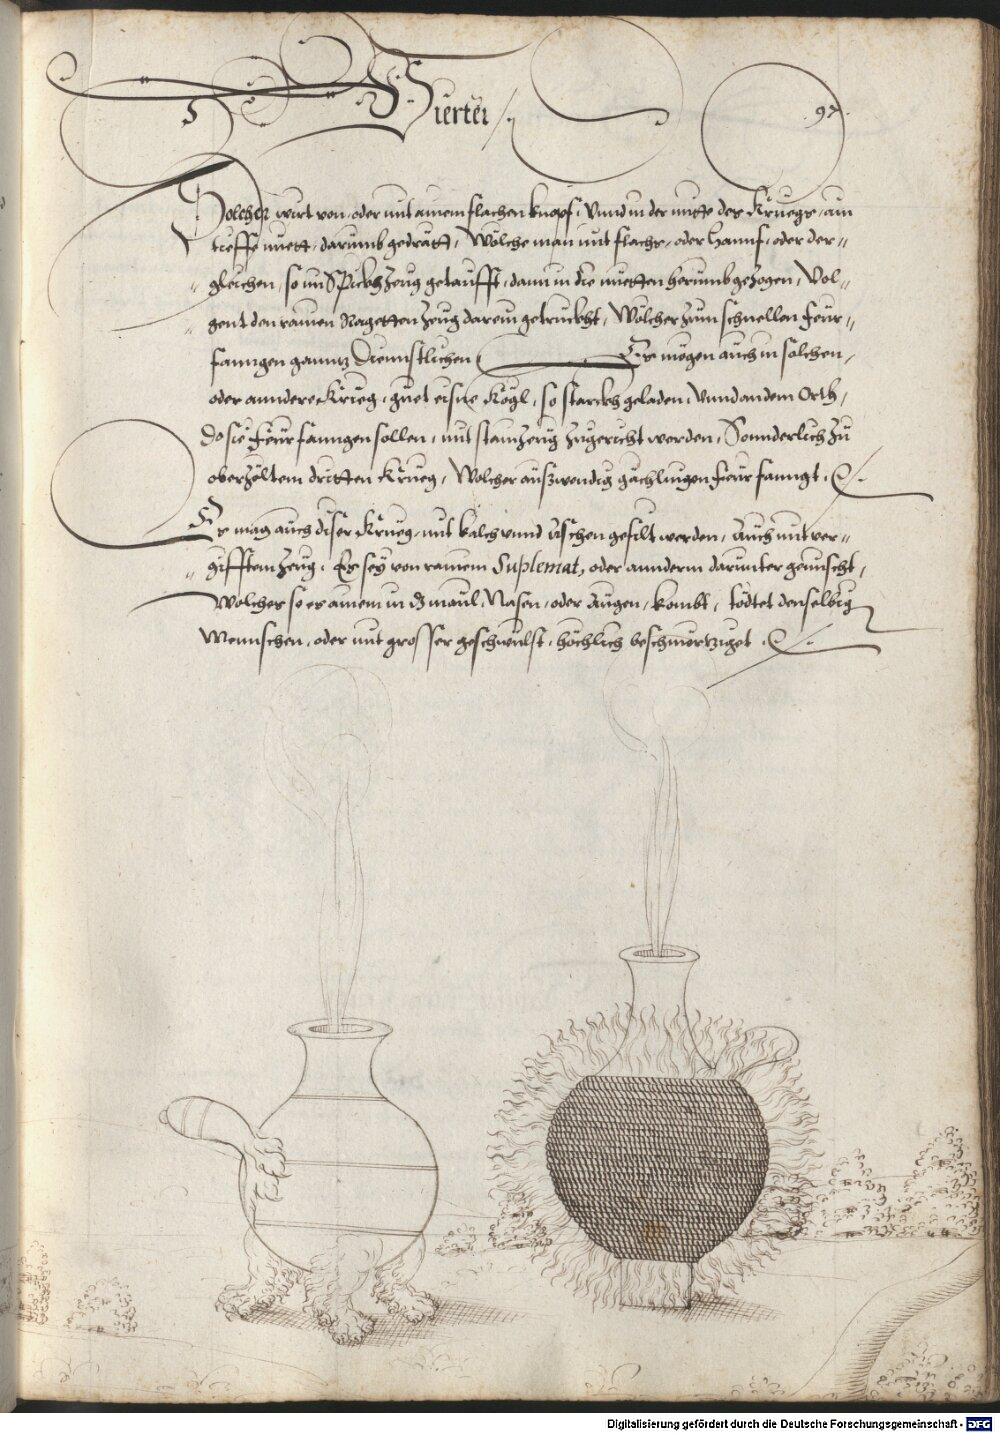 Vierter
97.
Solcher wirt von, oder mit ainem flachen knopf, Vnnd in der mitte des Kruegs, ain
tieffe nuett, darumb gedrätt, Wölche man mit flachs, oder Hannf, oder der-
gleichen, so in Spickhzeug getaufft, dann in die nuetten herumb gezogen, Vol-
gent den rauien Ragetten zeug darein getruckht, Wölcher zum schnellen Feur-
fanngen ganntz Diennstlichen Es mögen auch in solchen,
oder anndere Krieg, guet eisne Kögl, so starckh geladen, Vnnd an dem Orth,
do sie Feur fanngen sollen, mit stamzeug zugericht werden, Sonnderlich zu
oberzöltem dritten Krueg, Wolcher auszwendig gächlingen Feur fanngt.
Es mag auch diser Krueg, mit kalch vnnd äschen gefilt werden, Auch mit ver-
gifftem zeug, Es sey von rauiem Suplemat, oder annderm darunter gemischt,
Wolches so es ainem in dz maul, Nasen, oder Augen, kombt, tödtet denselbig
Mennschen, oder mit grosser geschwulst, höchlich beschmertziget.
Digitalisierung gefördert durch die Deutsche Forschungsgemeinschaft - DFG